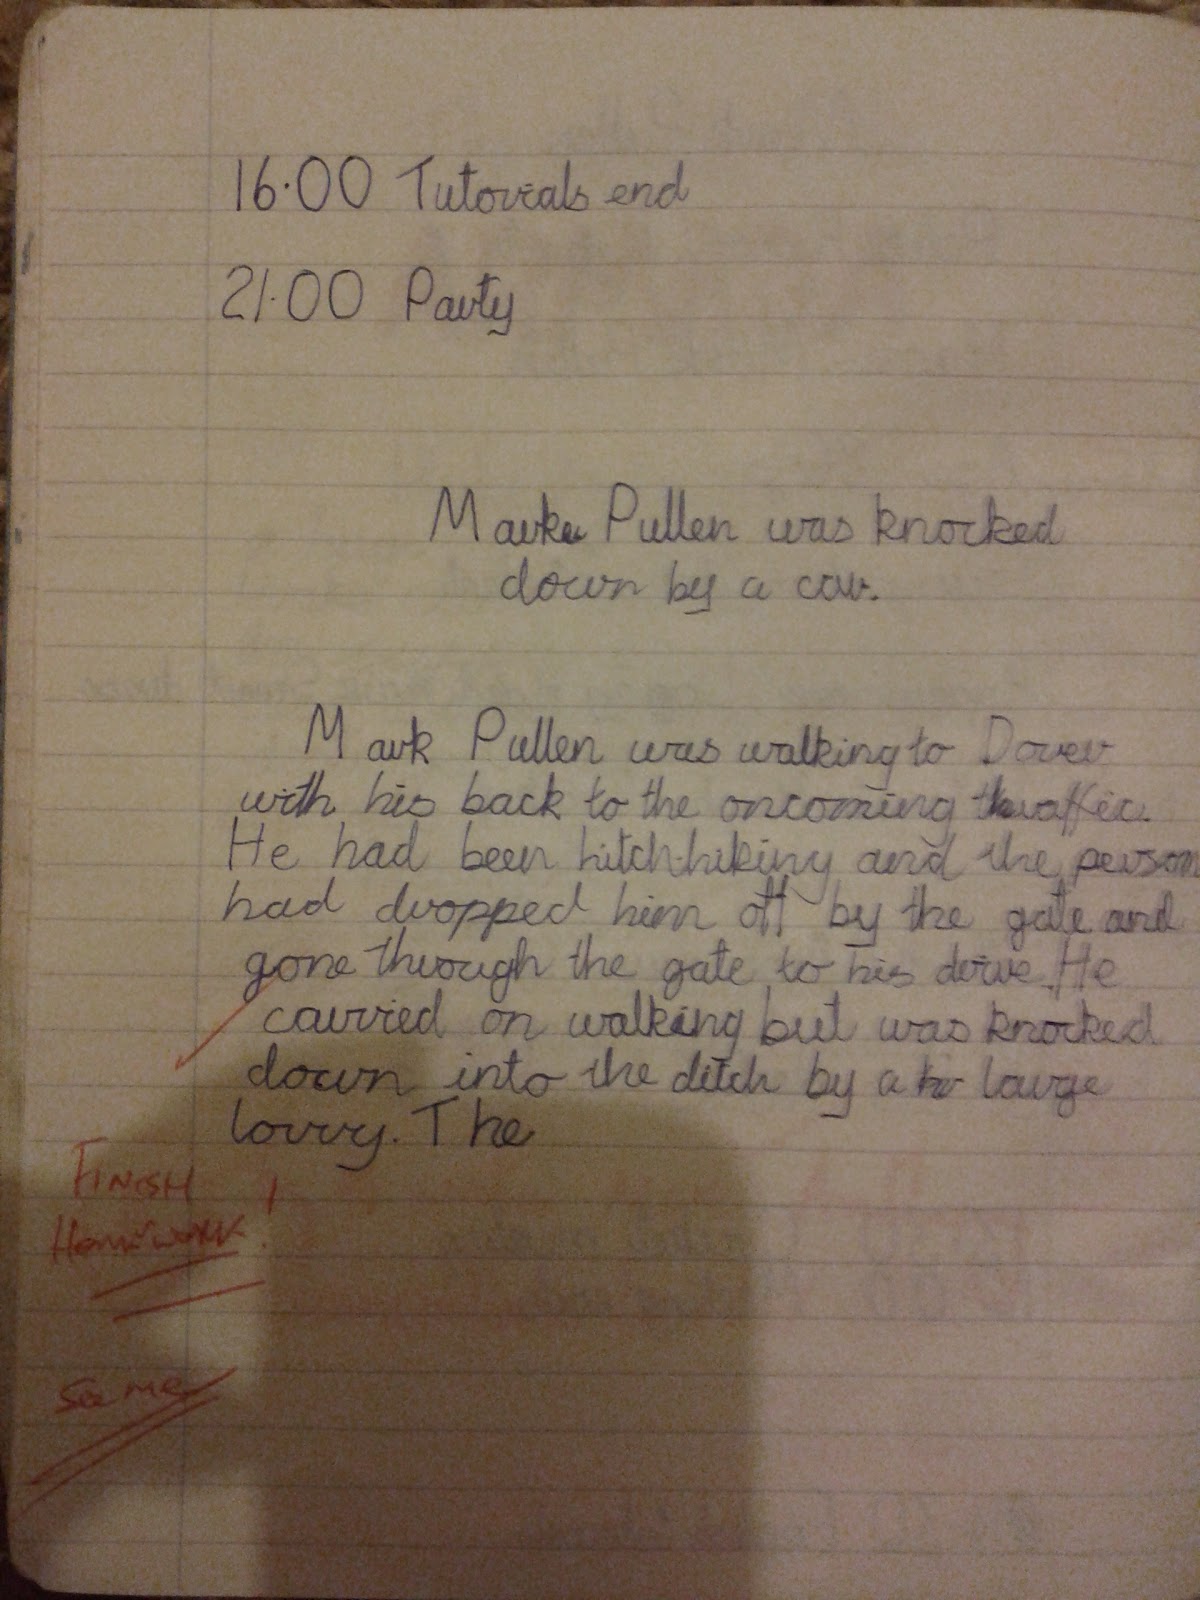 16.00 Tutorials end
21.00 Party
Mark Pullen was knocked
down by a car.
Mark Pullen was walking to Dover
with his back to the oncoming traffic.
He had been hitch-hiking and the person
had dropped him off by the gate and
gone through the gate to his drive. He
carried on walking but was knocked
down into the ditch by a large
lorry. The
FINISH
HOMEWORK!
See me